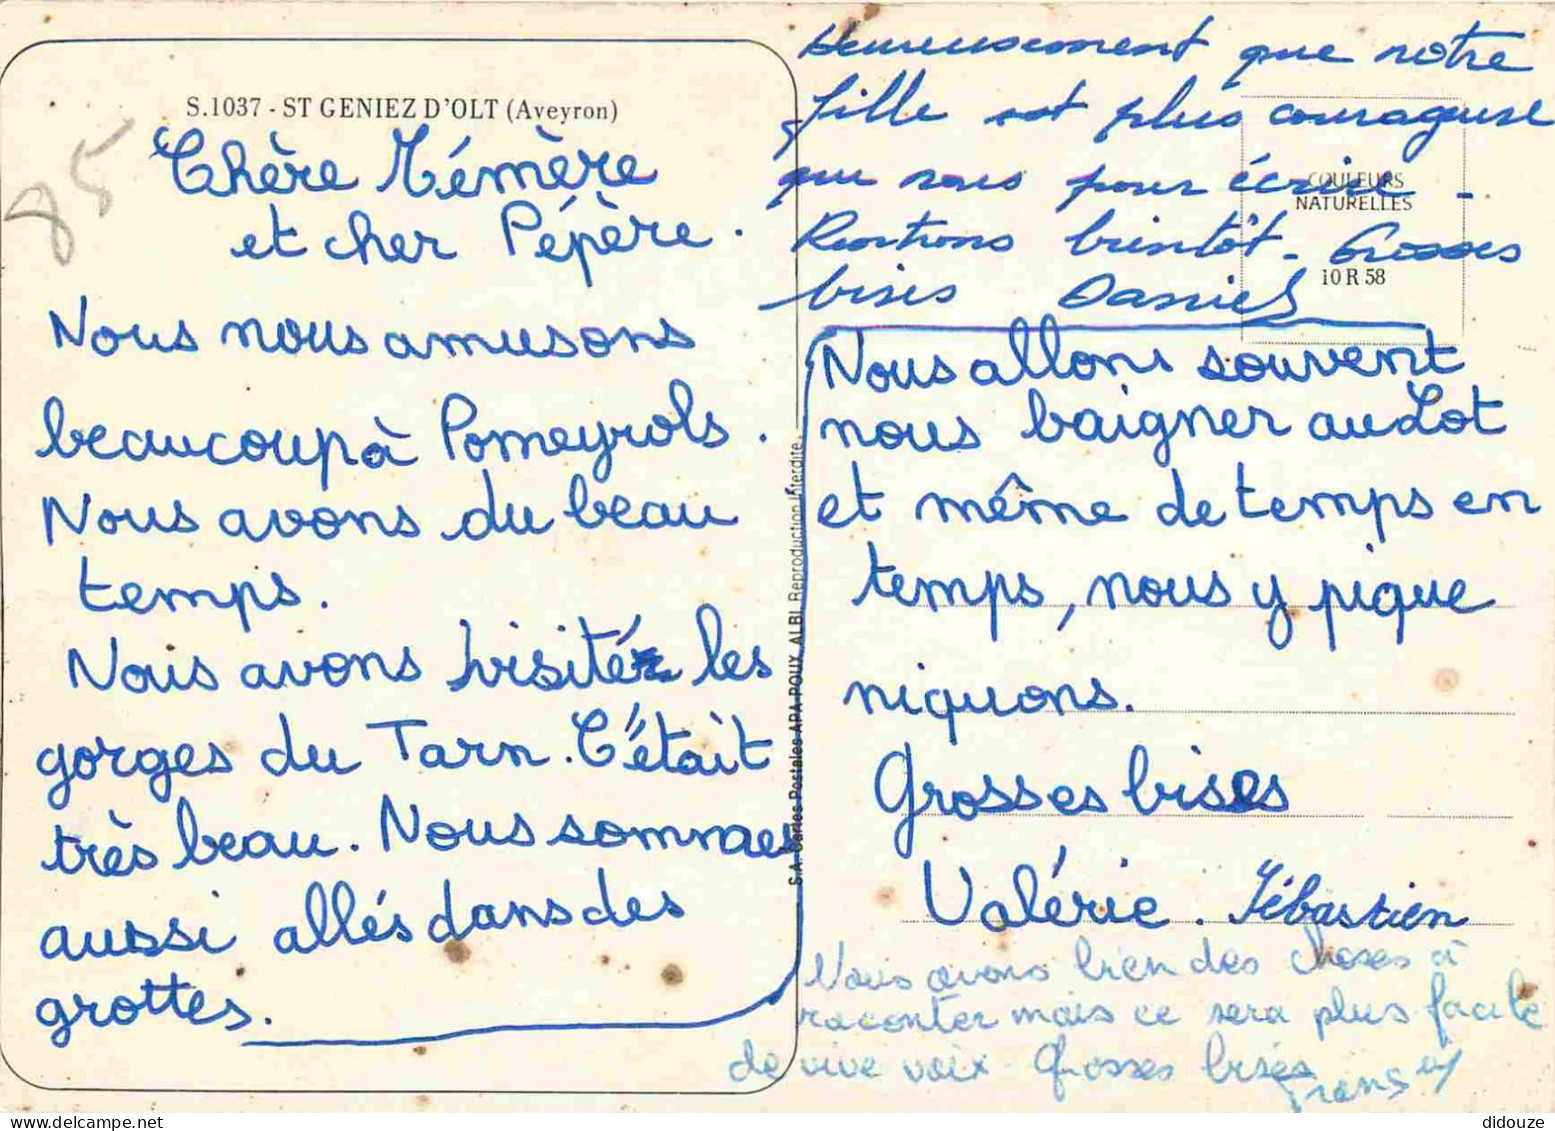 S.1037 - ST GENIEZ D'OLT (Aveyron)
85
Chère Mémère
et cher Pépère.
Nous nous amusons
beaucoup à Pomeyrols.
Nous avons du beau
temps.
Nous avons visité les
gorges du Tarn. C'était
très beau. Nous sommes
aussi allés dans des
grottes.
S.A. Cartes Postales APA-POUX ALBI Reproduction interdite.
Heureusement que notre
fille est plus courageuse
que nous pour écrire -
Rentrons bientôt - Grosses
bises Daniel
COULEURS
NATURELLES
10 R 58
Nous allons souvent
nous baigner au Lot
et même de temps en
temps, nous y pique
niquons.
Grosses bises
Valérie. Sébastien
Nous avons bien des choses à
raconter mais ce sera plus facile
de vive voix. Grosses bises
didouze